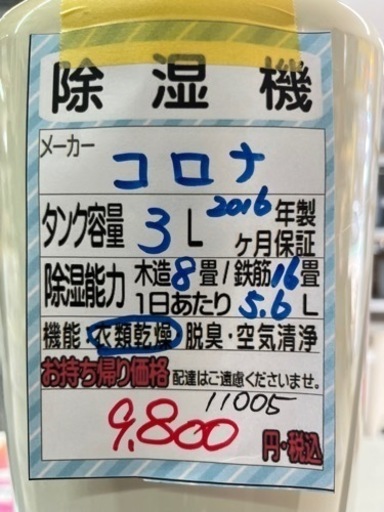 除湿機
メーカー
コロナ
タンク容量 3L 2016年製
ヶ月保証
除湿能力 木造8畳/鉄筋16畳
1日あたり5.6L
機能・衣類乾燥・脱臭・空気清浄
お持ち帰り価格 配達はご遠慮くださいませ。
11005
9,800円・税込